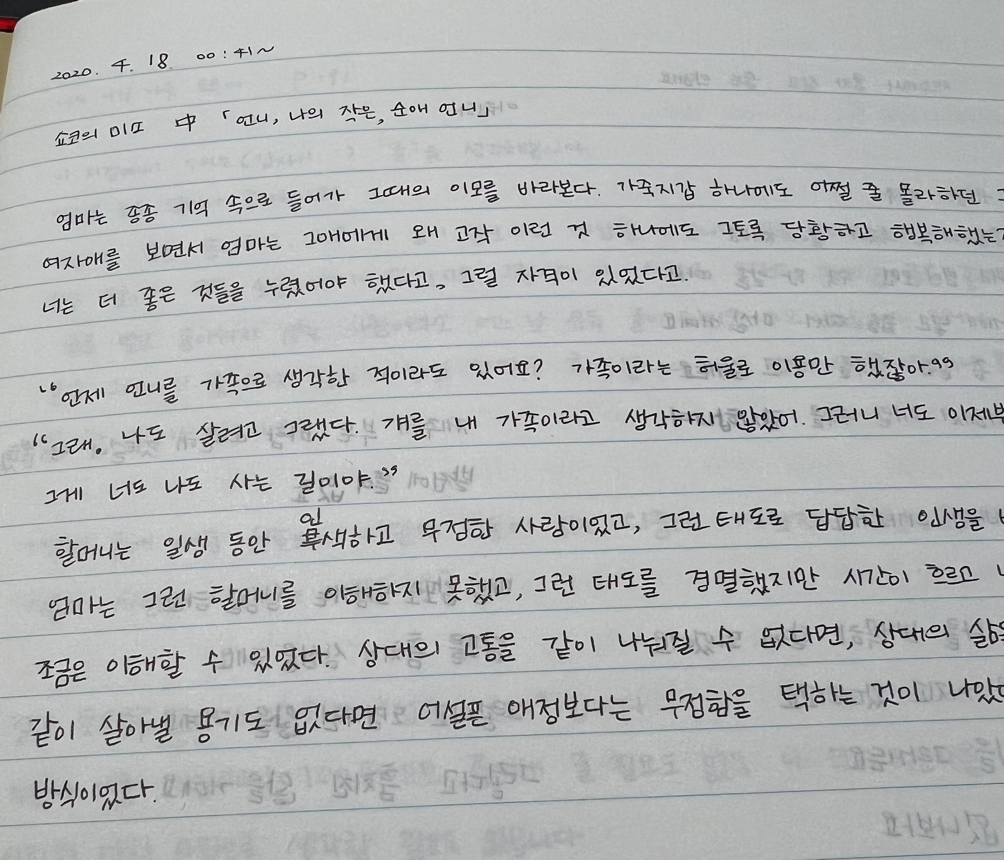 2020. 4. 18. 00:41~
쇼코의 미소 中 「언니, 나의 작은, 순애 언니」
엄마는 종종 기억 속으로 들어가 그때의 이모를 바라본다. 가죽지갑 하나에도 어쩔 줄 몰라하던
여자애를 보면서 엄마는 그애에게 왜 고작 이런 것 하나에도 그토록 당황하고 행복해했는
너는 더 좋은 것들을 누렸어야 했다고, 그럴 자격이 있었다고.
"언제 언니를 가족으로 생각한 적이라도 있어요? 가족이라는 허울로 이용만 했잖아."
"그래. 나도 살려고 그랬다. 걔를 내 가족이라고 생각하지 않았어. 그러니 너도 이제부
그게 너도 나도 사는 길이야."
할머니는 일생 동안 인색하고 무정한 사람이었고, 그런 태도로 답답한 인생을
엄마는 그런 할머니를 이해하지 못했고, 그런 태도를 경멸했지만 시간이 흐르고
조금은 이해할 수 있었다. 상대의 고통을 같이 나눠질 수 없다면, 상대의 삶을
같이 살아낼 용기도 없다면 어설픈 애정보다는 무정함을 택하는 것이 나았
방식이었다.